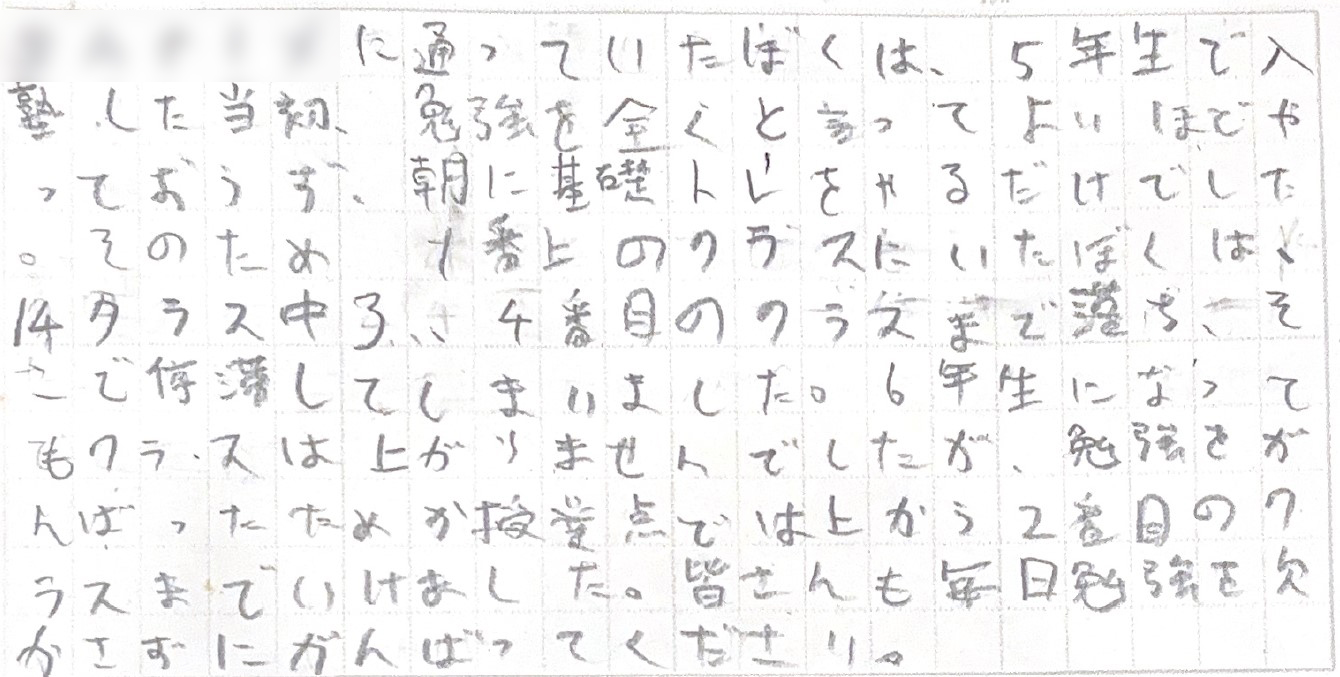 に通っていたぼくは、5年生で入
塾した当初、勉強を全くと言ってよいほどや
っておらず、朝に基礎トレをやるだけでした
。そのため 番上のクラスにいたぼくは、
14クラス中 4番目のクラスまで落ち、そ
こで停滞してしまいました。6年生になって
もクラスは上がりませんでしたが、勉強をが
んばったためか授業点では上から2番目のク
ラスまでいけました。皆さんも毎日勉強を欠
かさずにがんばってください。